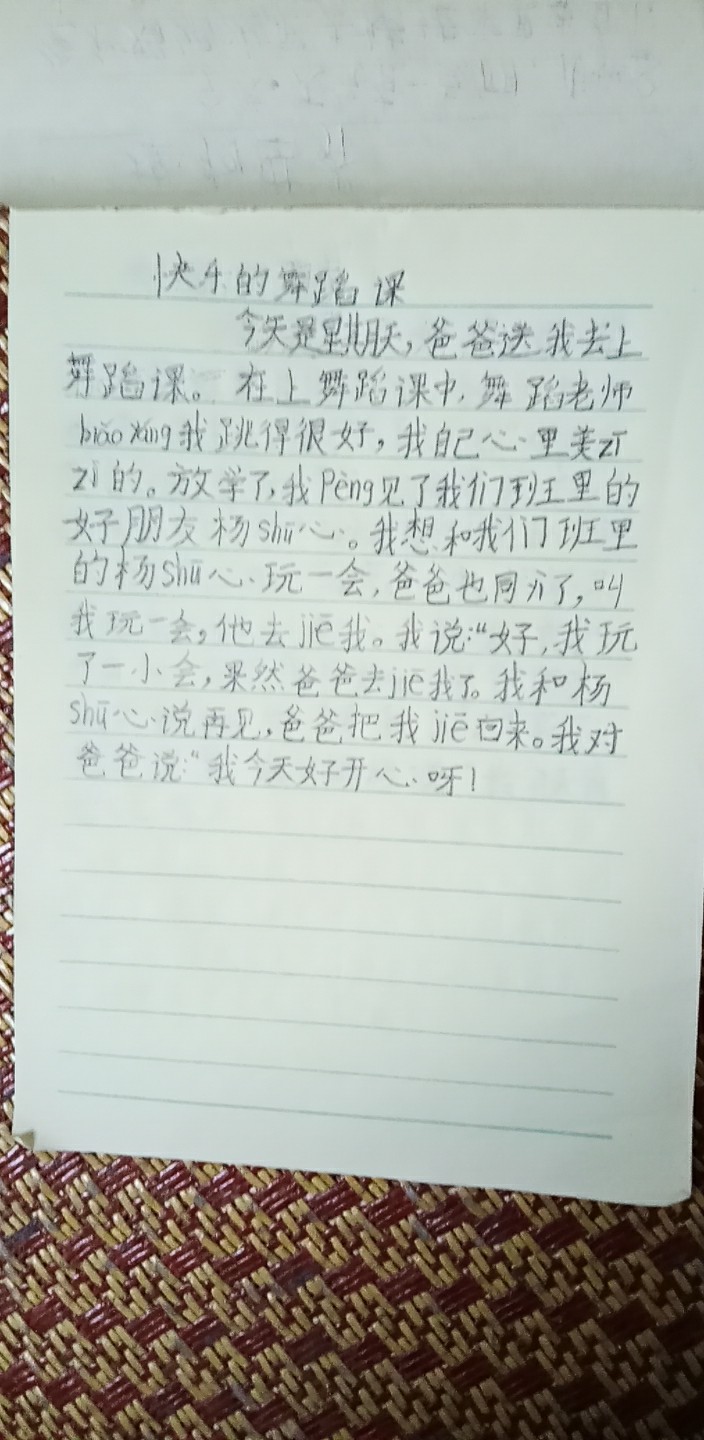 快乐的舞蹈课
今天是星期天，爸爸送我去上
舞蹈课。在上舞蹈课中，舞蹈老师
biǎo yáng我跳得很好，我自己心里美zī
zī的。放学了，我Pèng见了我们班里的
好朋友杨shū心。我想和我们班里
的杨shū心玩一会，爸爸也同力了，叫
我玩一会，他去jiē我。我说：“好，我玩
了一小会，果然爸爸去jiē我了。我和杨
shū心说再见，爸爸把我jiē回来。我对
爸爸说：“我今天好开心呀！